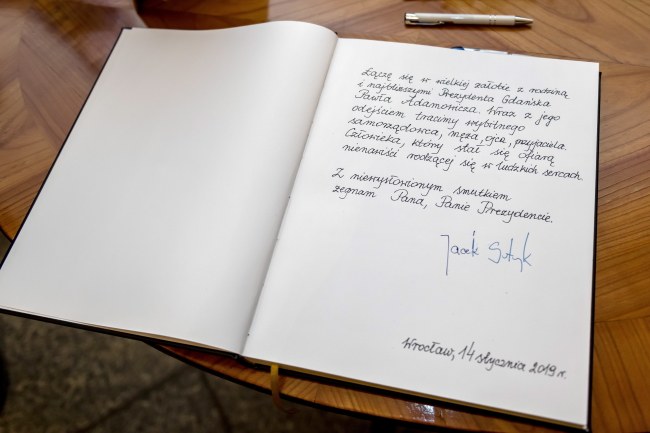 Łączę się w wielkiej żałobie z rodziną
i najbliższymi Prezydenta Gdańska
Pawła Adamowicza. Wraz z jego
odejściem tracimy wybitnego
samorządowca, męża, ojca, przyjaciela.
Człowieka, który stał się ofiarą
nienawiści rodzącej się w ludzkich sercach.
Z niewysłowionym smutkiem
żegnam Pana, Panie Prezydencie.
Jacek Sutryk
Wrocław, 14 stycznia 2019 r.